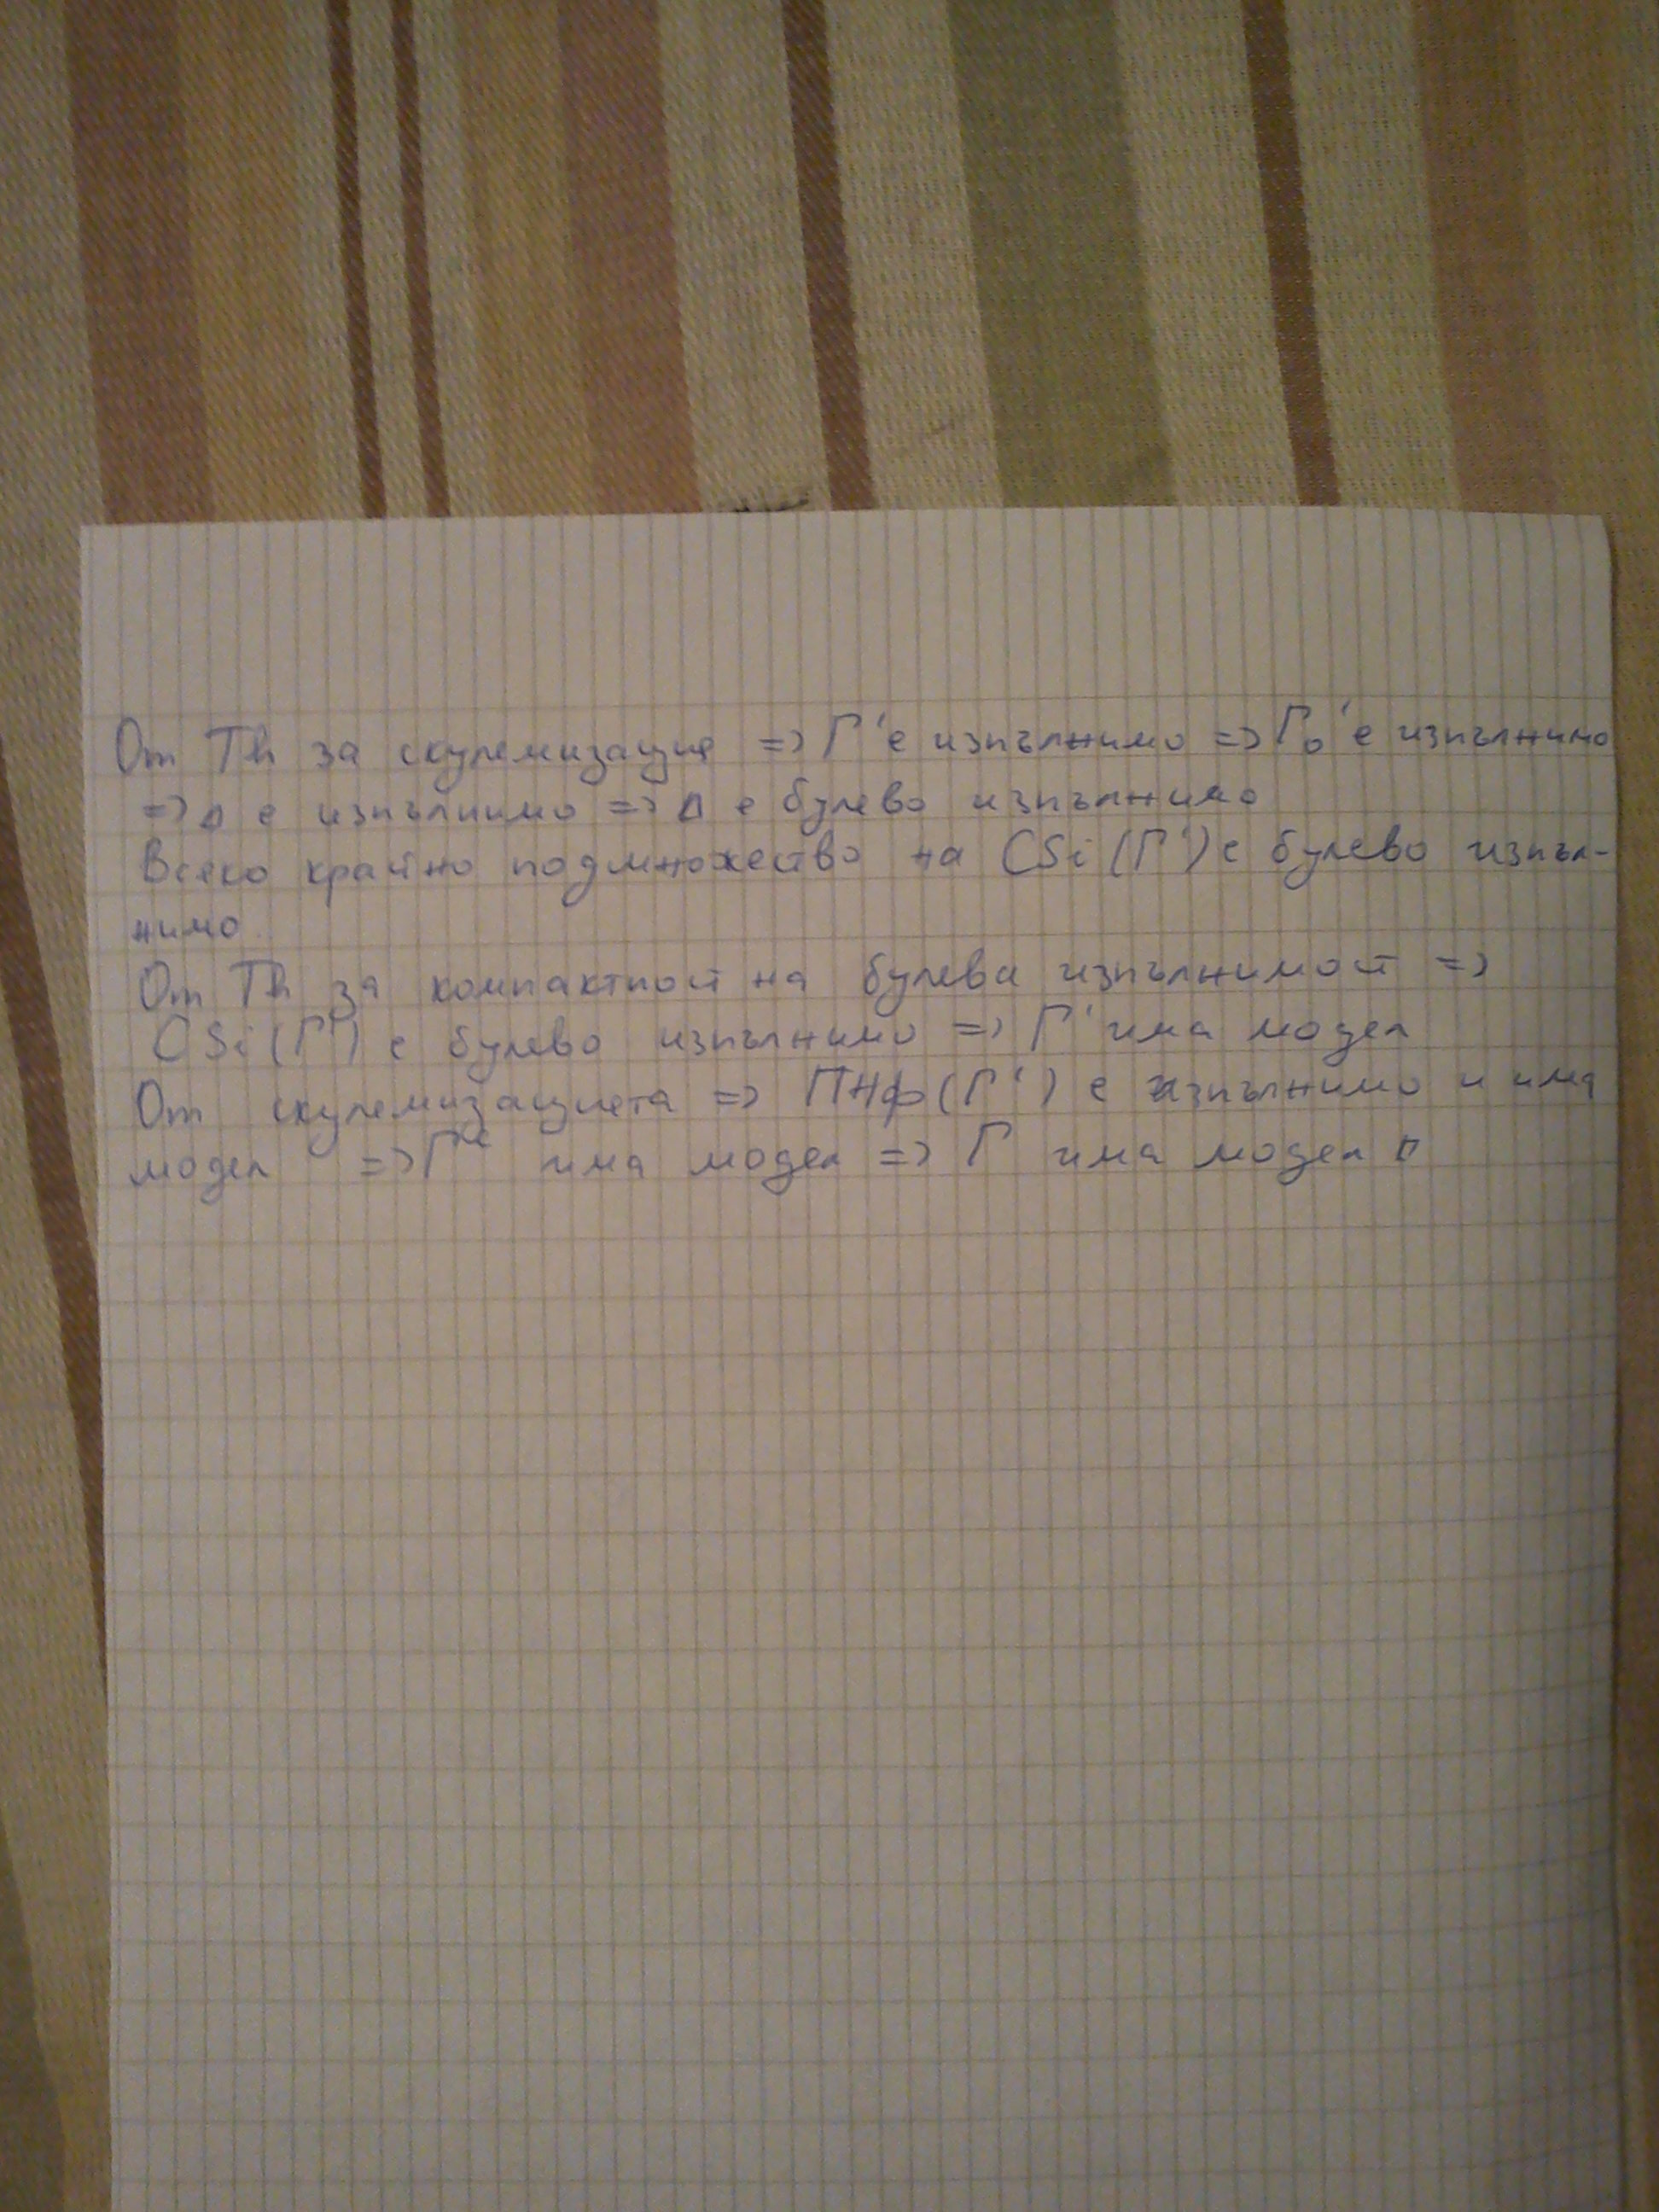 От Th за скулемизация => Г' е изпълнимо => Г₀' е изпълнимо
=> Δ е изпълнимо => Δ е булево изпълнимо
Всяко крайно подмножество на CSi(Г') е булево изпъл-
нимо.
От Th за компактност на булева изпълнимост =>
CSi(Г') е булево изпълнимо => Г' има модел
От скулемизацията => ПНФ(Г') е изпълнимо и има
модел => Г има модел => Г има модел □